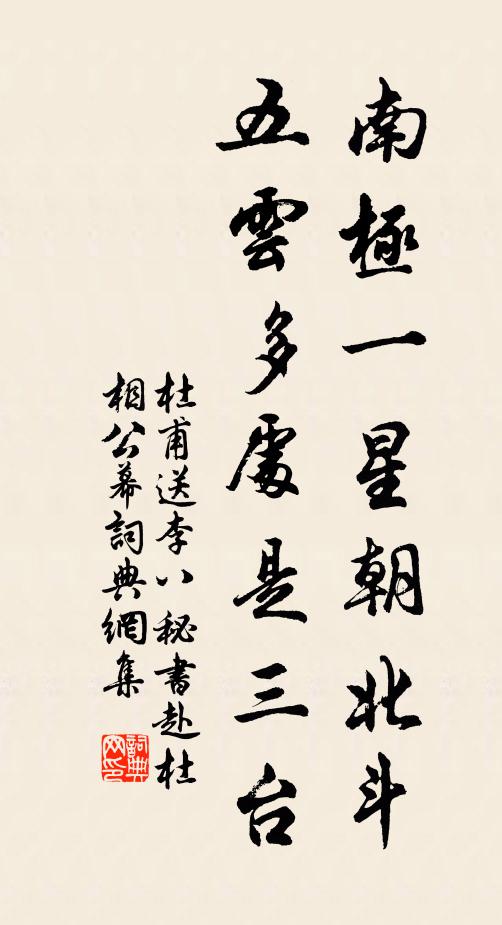 南極一星朝北斗
五雲多處是三台
杜甫送李八秘書赴杜
相公幕詞典網集
詞典
网印